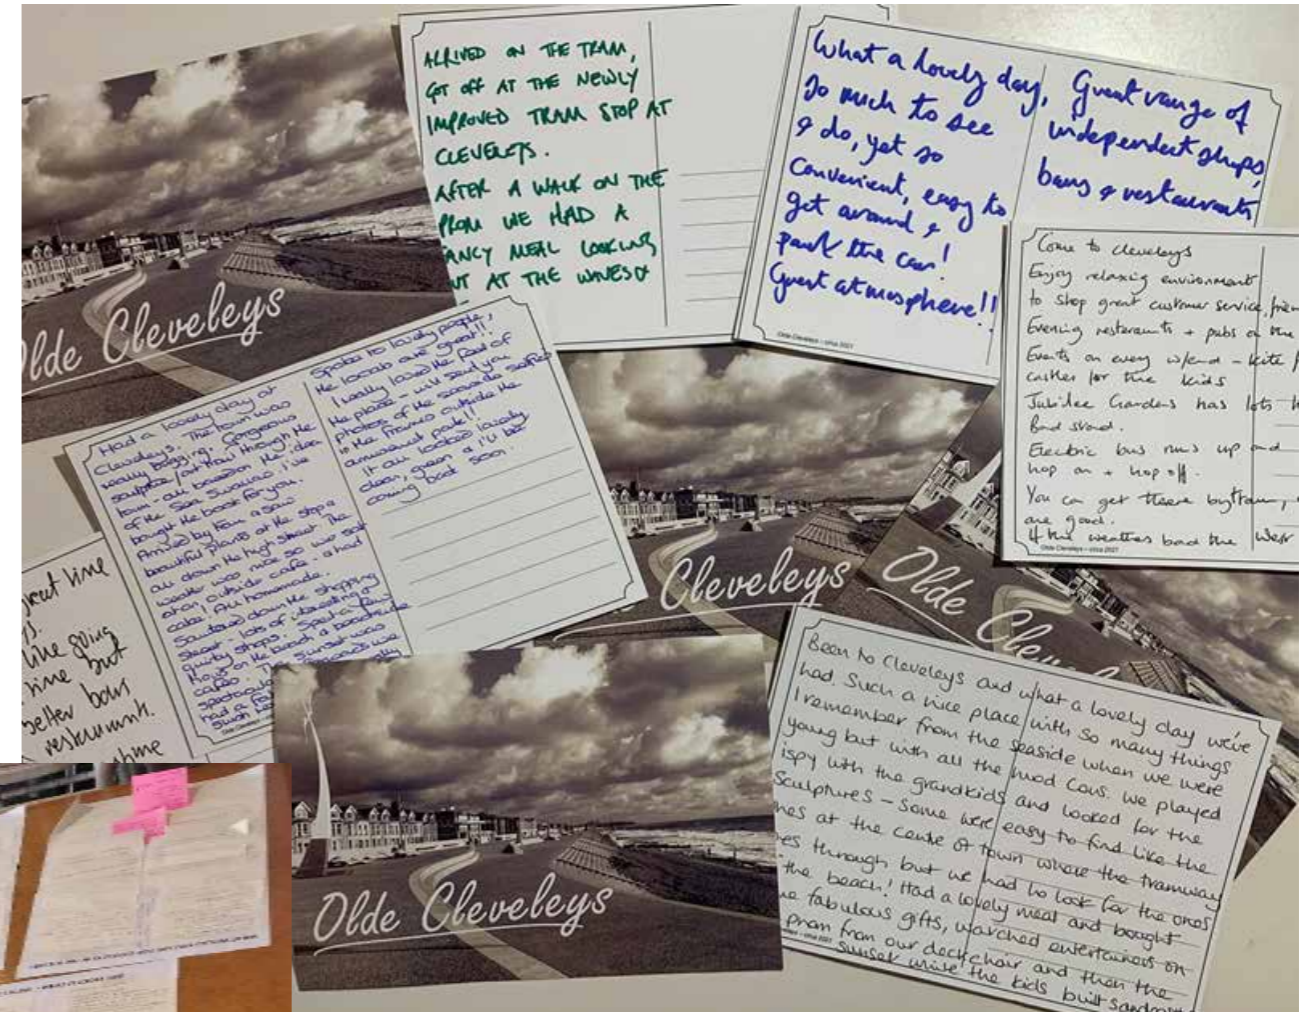 ARRIVED ON THE TRAM,
GOT OFF AT THE NEWLY
IMPROVED TRAM STOP AT
CLEVELEYS.
AFTER A WALK ON THE
PROM WE HAD A
ANCY MEAL LOOKING
UT AT THE WAVES
What a lovely day,
So much to see
& do, yet so
convenient, easy to
get around &
park the car!
Great atmosphere!!
Great range of
independent shops,
bars & restaurants
Olde Cleveleys - circa 2021
Come to cleveleys
Enjoy relaxing environment
to shop great customer service, frien
Evening restaurants + pubs on the
Events on every w/end - kite
castles for the kids
Jubilee Gardens has lots
Band stand.
Electric bus runs up and
hop on + hop off.
You can get there by tram,
are good.
If the weathers bad the
Olde Cleveleys - circa 2021
lde Cleveleys
Had a lovely day at
Cleveleys. The town was
really buzzing. Gorgeous
sculpture/art trail through the
town - all based on the idea
of the Sea Swallow. I've
bought the book for you.
Arrived by tram & saw
beautiful plants at the stop &
all down the high street. The
weather was nice so we sat
at an outside café & had
cake! All homemade.
Sauntered down the shopping
street - lots of interesting &
quirky shops. Spent a few
hours on the beach & beachside
café. The sunset was
spectacular
had a
Spoke to lovely people,
the locals are great!!
I really loved the feel of
the place - will send you
photos of the seaside selfies
in the frames outside the
amusement park!!
It all looked lovely
clean, green & I'll be
coming back soon.
reat time
ys.
time going
time but
better bars
restaurants.
Cleveleys
Olde
Cleve
Olde Cleveleys
Been to Cleveleys and what a lovely day we've
had. Such a nice place with so many things
I remember from the seaside when we were
young but with all the mod cons. We played
ispy with the grandkids and looked for the
sculptures - some were easy to find like the
nes at the centre of town where the tramway
es through but we had to look for the ones
the beach! Had a lovely meal and bought
e fabulous gifts, watched entertainers on
prom from our deckchair and then the
sunset while the kids built sand